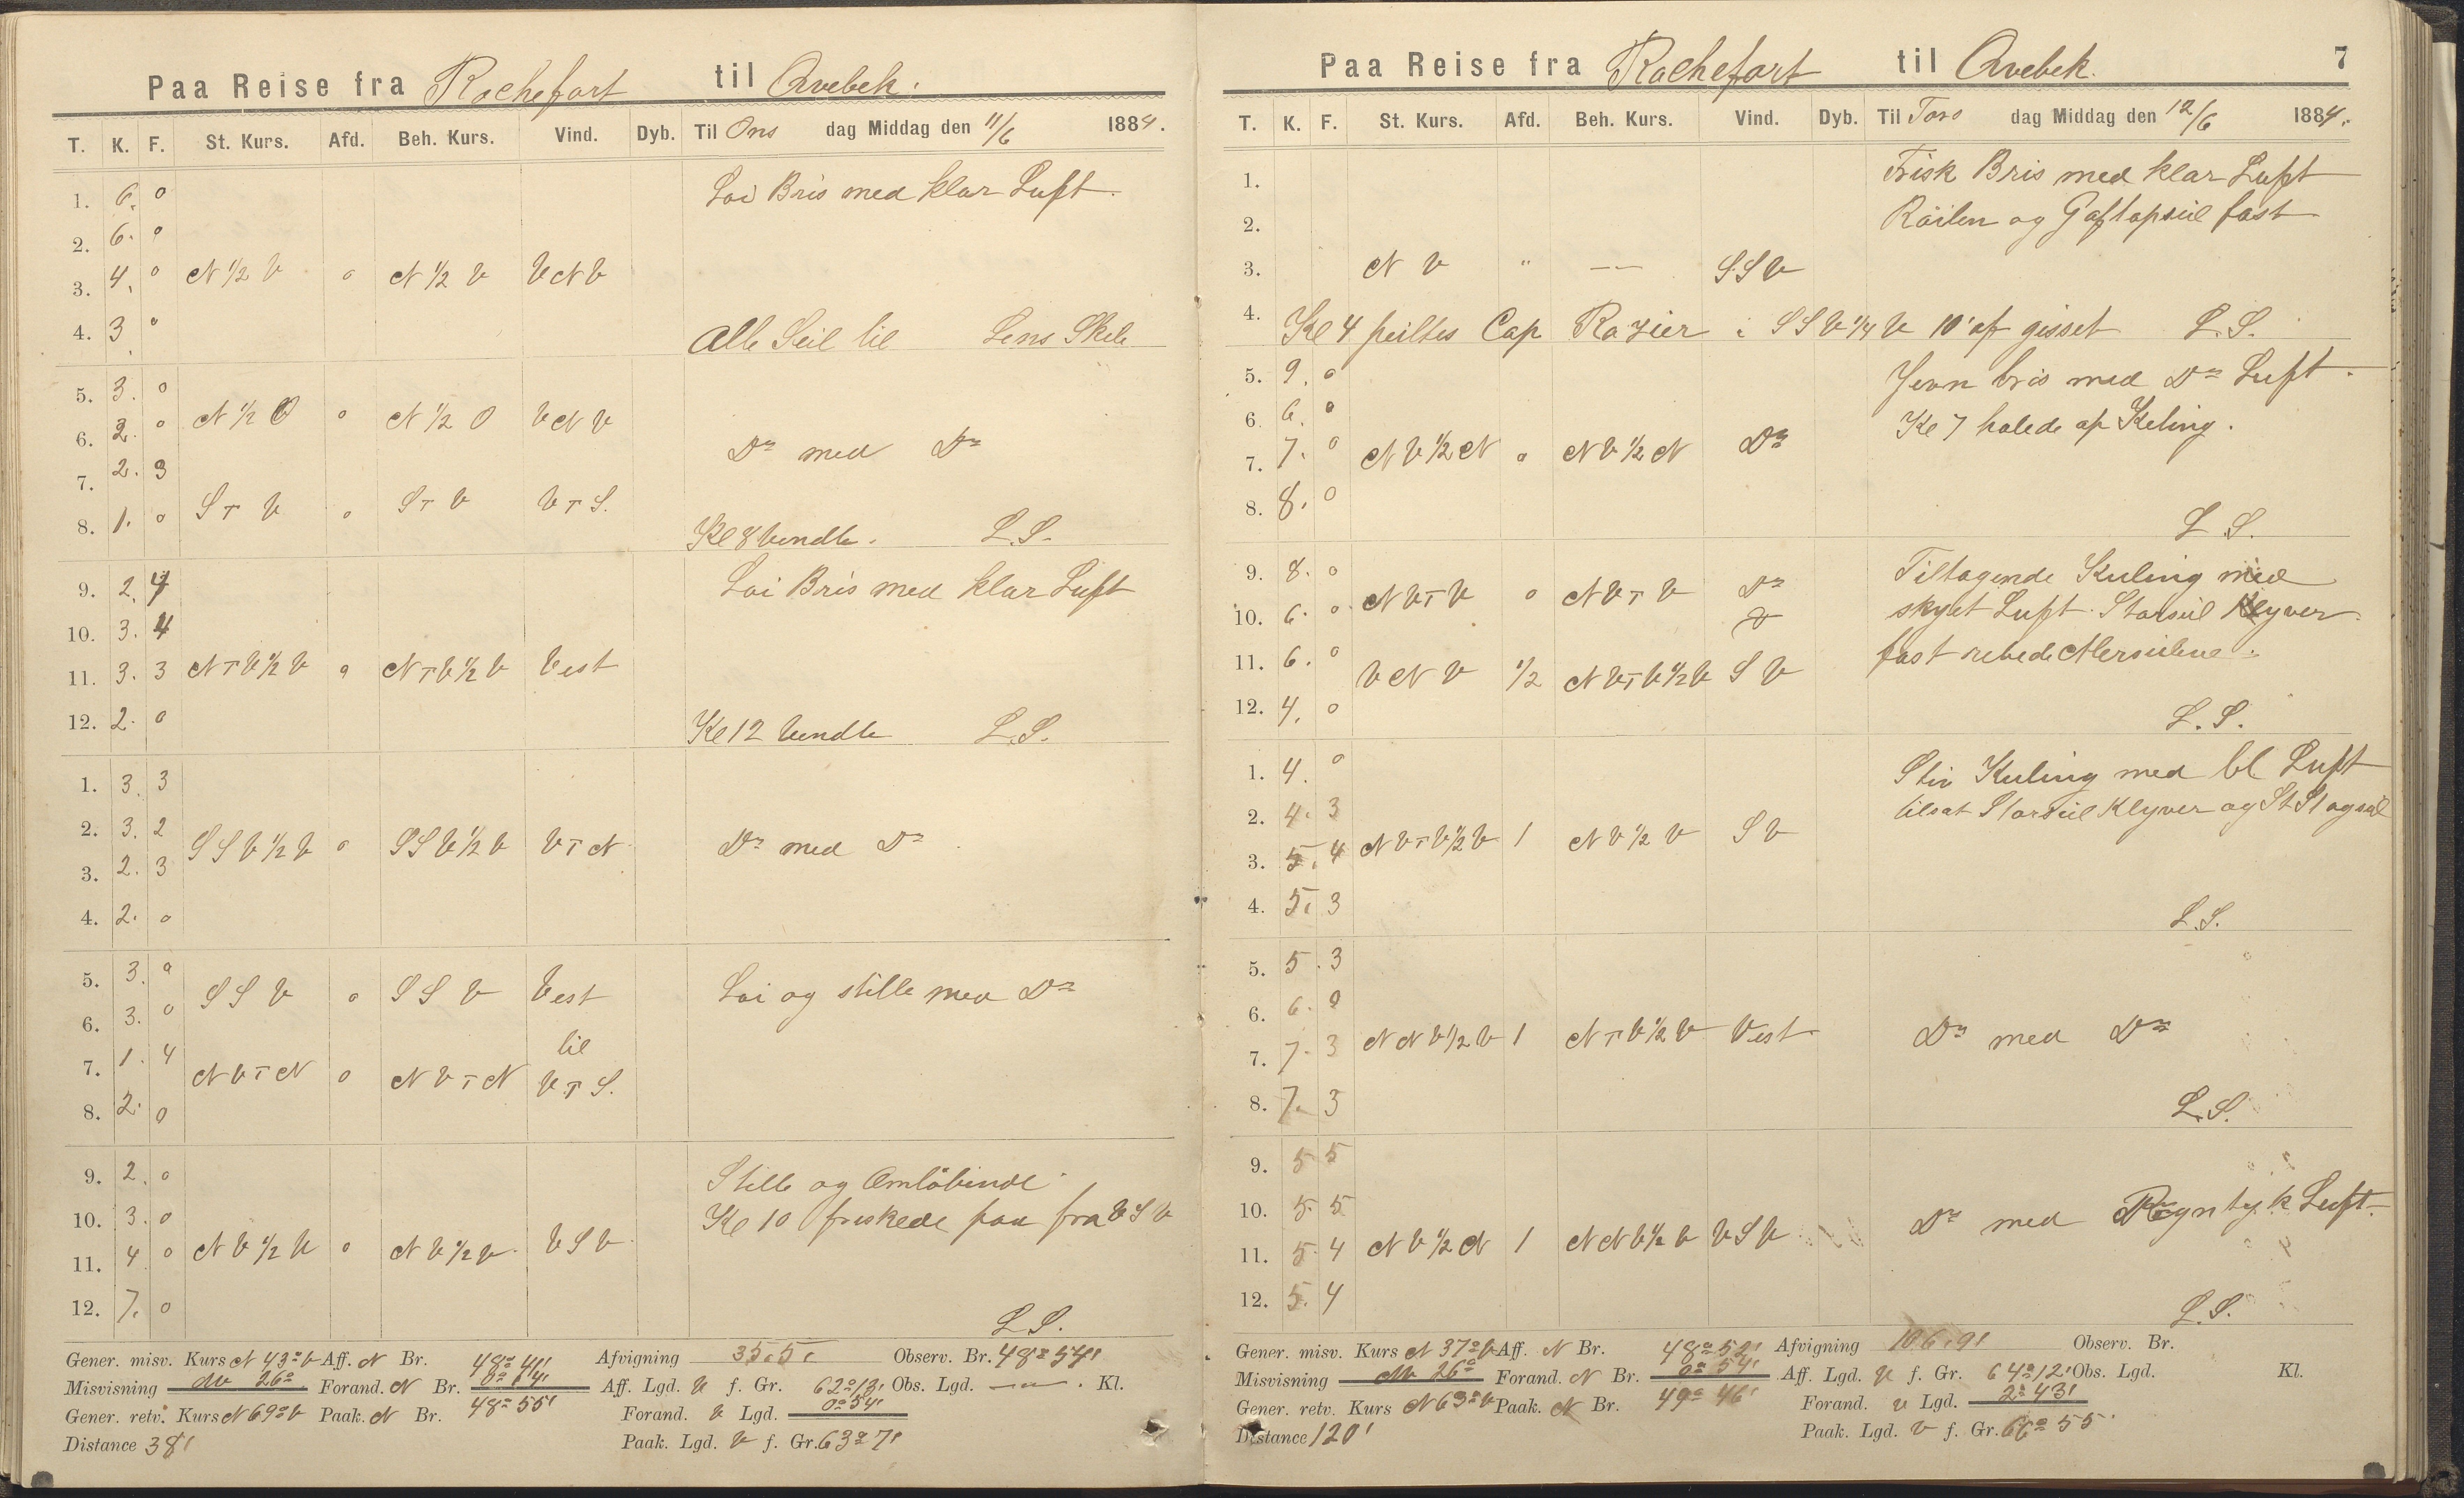 Paa Reise fra Rochefort til Qvebek.
T. K. F. St. Kurs. Afd. Beh. Kurs. Vind. Dyb. Til Ons dag Middag den 11/6 1884.
1. 6. 0 Løi Bris med klar Luft.
2. 6. 0
3. 4. 0 N ½ V 0 N ½ V VNV
4. 3. 0 Alle Seil til Lens Skib
5. 3. 0
6. 2. 0 N ½ O 0 N ½ O VNV
7. 2. 3 Do med Do
8. 1. 0 S T V 0 S T V V T S.
Kl 8 vendte. L.S.
9. 2. 4 Løi Bris med klar Luft
10. 3. 4
11. 3. 3 N T V ½ V 0 N T V ½ V Vest
12. 2. 0 Kl 12 vendte L.S.
1. 3. 3
2. 3. 2
3. 2. 3 SSV ½ V 0 SSV ½ V V T N Do med Do
4. 2. 0
5. 3. 0 SSV 0 SSV Vest Løi og stille med Do
6. 3. 0
7. 1. 4 NV T N 0 NV T N til V T S.
8. 2. 0
9. 2. 0 Stille og Omløbende
10. 3. 0 Kl 10 friskede paa fra VSV
11. 4 0 NV ½ V 0 NV ½ V VSV
12. 7. 0 L.S.
Gener. misv. Kurs N 43° V Aff. N Br. 48° 41' Afvigning 35,5, Observ. Br. 48° 54'
Misvisning NV 26° Forand. N Br. 0° 14' Aff. Lgd. V f. Gr. 62° 13' Obs. Lgd. — . Kl.
Gener. retv. Kurs N 69° V Paak. N Br. 48° 55' Forand. V Lgd. 0° 54'
Distance 38' Paak. Lgd. V f. Gr. 63° 7'
Paa Reise fra Rochefort til Qvebek. 7
T. K. F. St. Kurs. Afd. Beh. Kurs. Vind. Dyb. Til Tors dag Middag den 12/6 1884.
1. Frisk Bris med klar Luft
2. Røilen og Gaftopseil fast
3. N V " — SSV
4. Kl 4 peiltes Cap Rozier i SSV ¼ V 10' af gisset L.S.
5. 9. 0 Jevn bris med Do Luft.
6. 6. 0 Kl 7 halede af Keling.
7. 7. 0 NV ½ N 0 NV ½ N Do
8. 8. 0 L.S.
9. 8. 0 NV T V 0 NV T V Do Tiltagende Kuling med
10. 6. 0 skyet Luft. Storseil Klyver
11. 6. 0 VNV ½ NV T V ½ V SV fast rebede Mersseilene.
12. 4. 0 L.S.
1. 4. 0 Stiv Kuling med bl Luft
2. 4. 3 tilsat Storseil Klyver og St Stagseil
3. 5. 4 NV T V ½ V 1 NV ½ V SV
4. 5. 3 L.S.
5. 5. 3
6. 6. 0
7. 7. 3 NNV ½ V 1 N T V ½ V Vest Do med Do
8. 7. 3 L.S.
9. 5 5
10. 5. 5 Do med Regntyk Luft.
11. 5. 4 NV ½ N 1 NNV ½ V VSV
12. 5. 4 L.S.
Gener. misv. Kurs N 37° V Aff. N Br. 48° 52' Afvigning 106,9' Observ. Br.
Misvisning NV 26° Forand. N Br. 0° 54' Aff. Lgd. V f. Gr. 64° 12' Obs. Lgd. Kl.
Gener. retv. Kurs N 63° V Paak. N Br. 49° 46' Forand. V Lgd. 2° 43'
Distance 120' Paak. Lgd. V f. Gr. 66° 55'